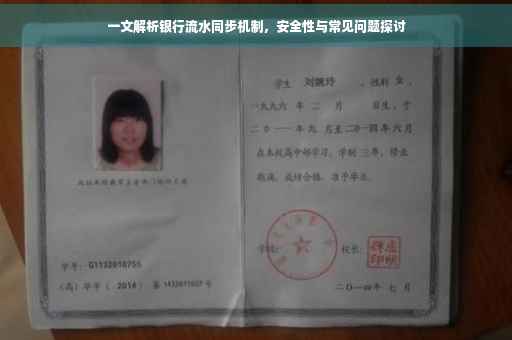 一文解析银行流水同步机制，安全性与常见问题探讨
学生 刘婉玲 ，性别 女 ，
一九九六 年 二 月 日生，于
二〇一一年 九 月至二〇一四年 六 月
在本校高中部学习，学制 三 年，修业
期满，成绩合格，准予毕业。
学校：
校长：
学号：G1132010755
（高）毕字（ 2014 ）第 1432011027 号
二〇一四年 七 月